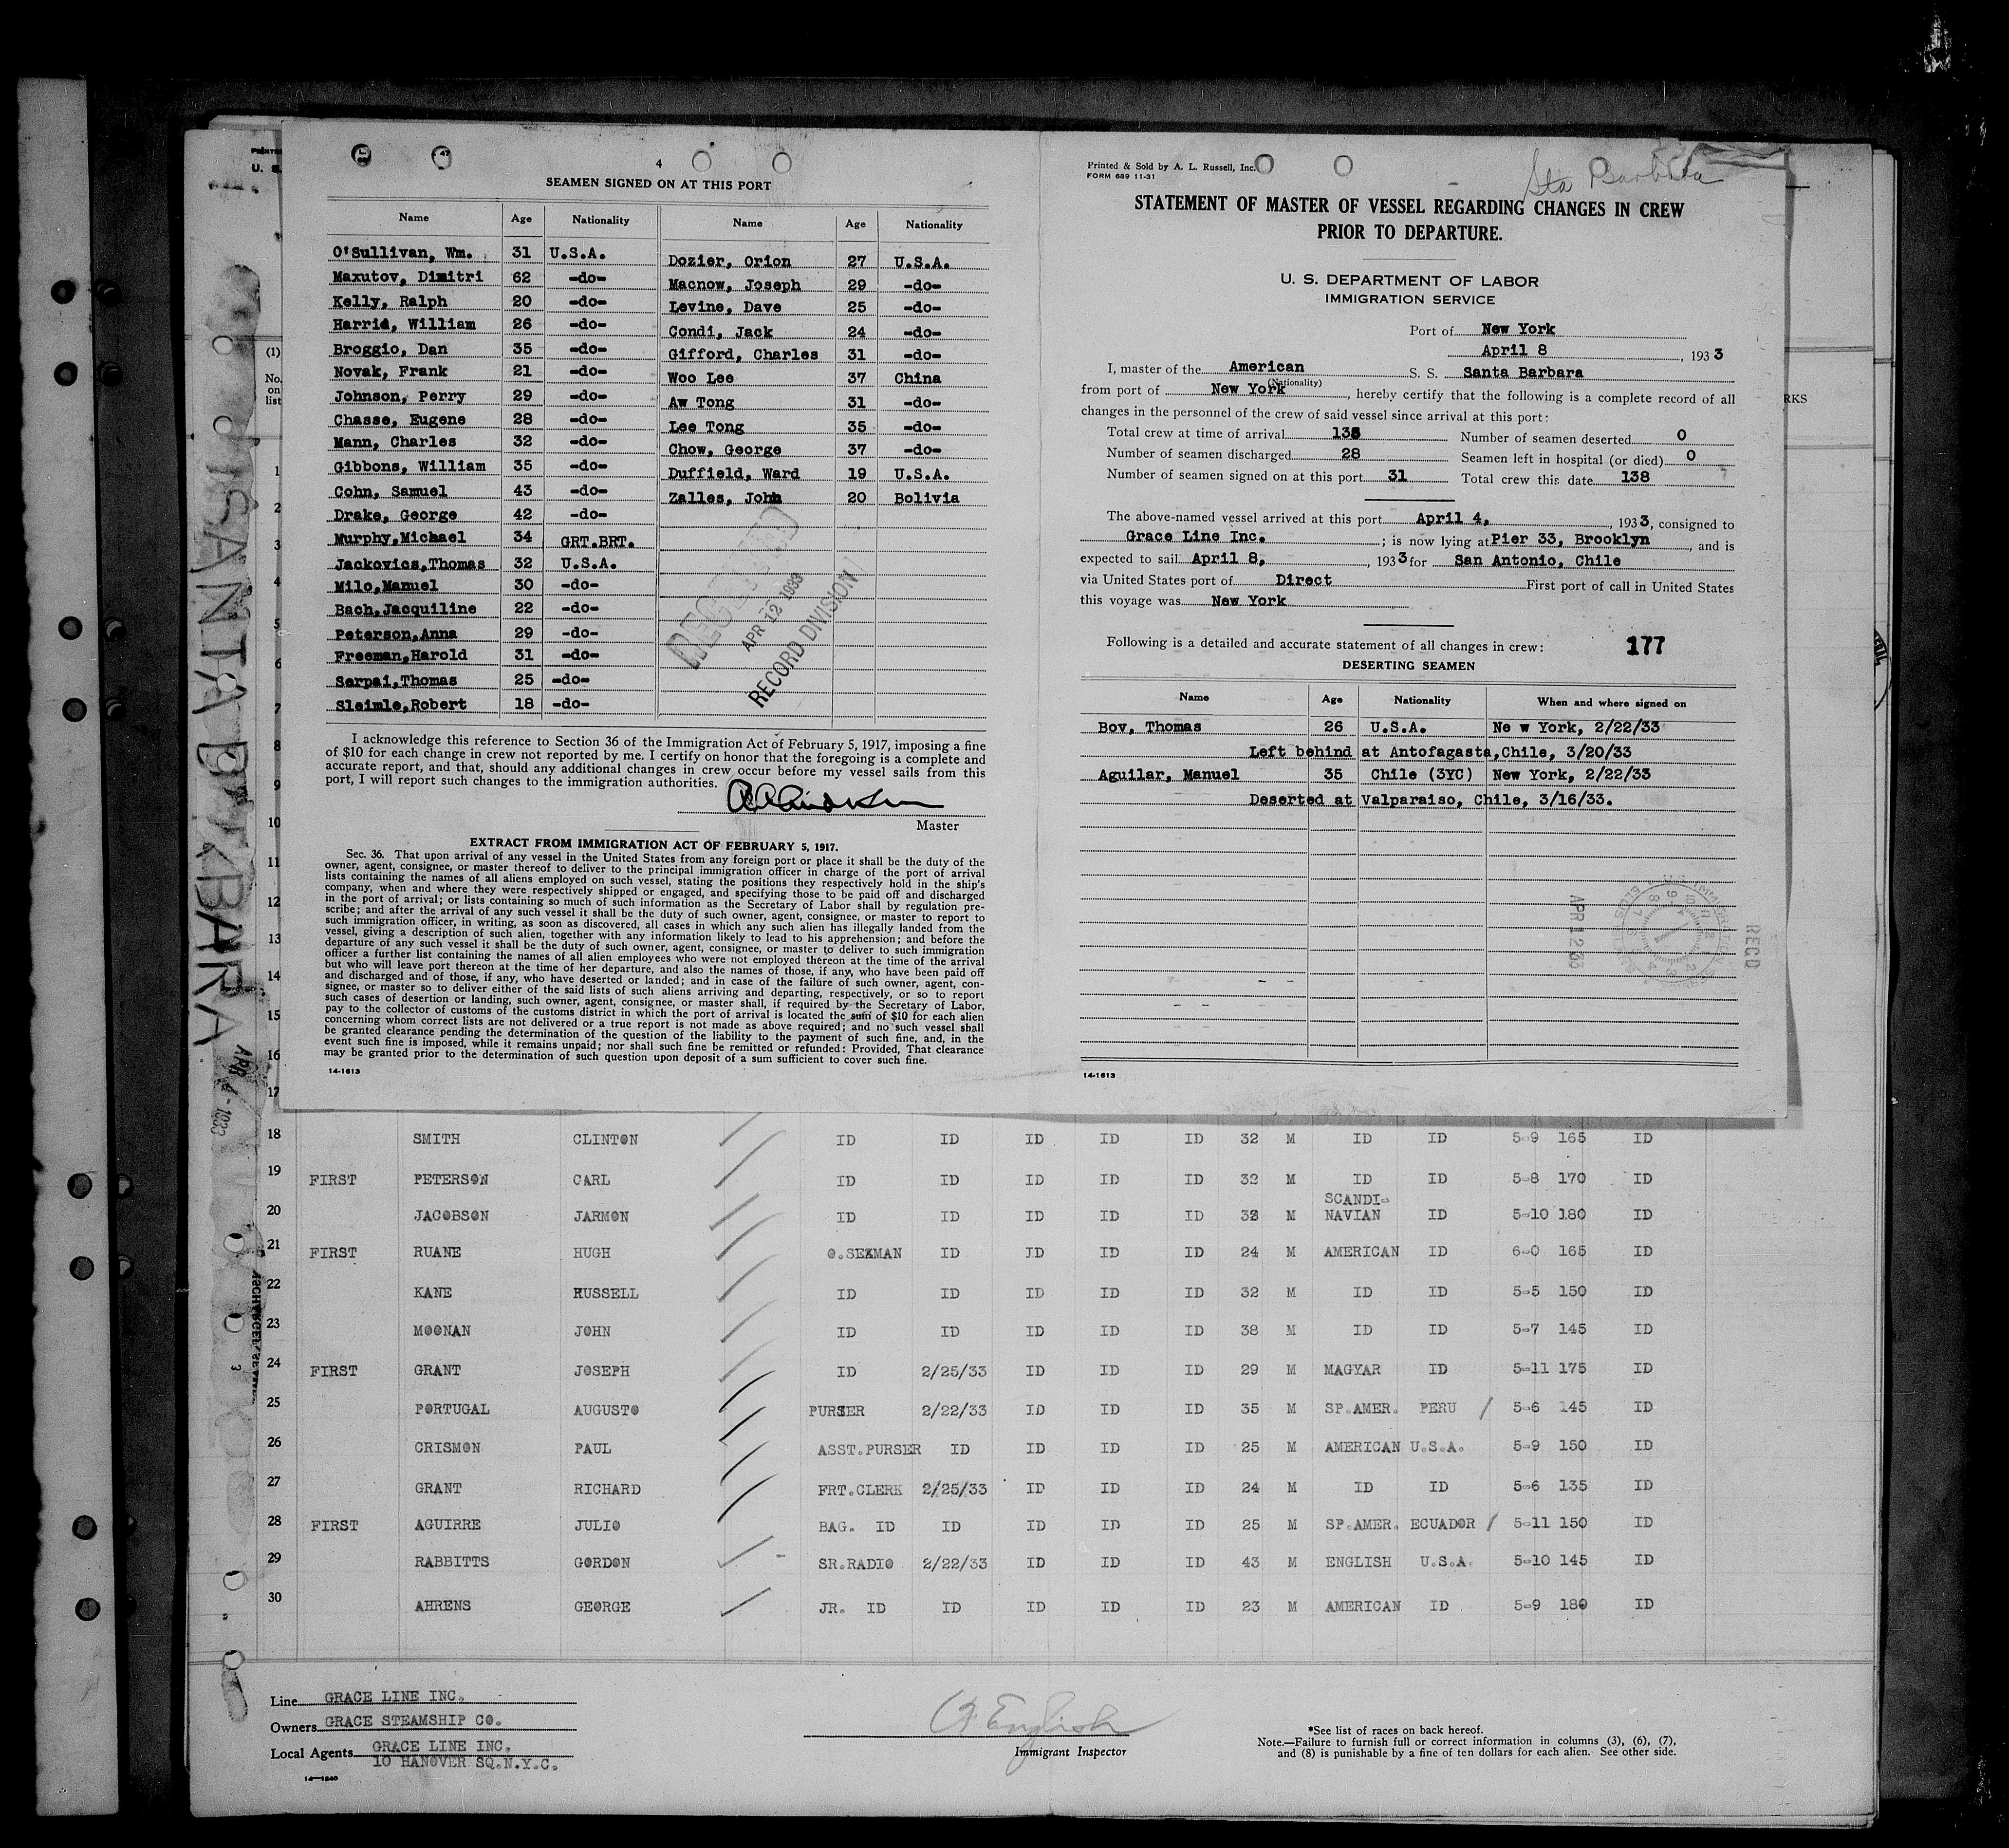 4
SEAMEN SIGNED ON AT THIS PORT
Name Age Nationality Name Age Nationality
O'Sullivan, Wm. 31 U.S.A. Dozier, Orion 27 U.S.A.
Maxutov, Dimitri 62 -do- Macnow, Joseph 29 -do-
Kelly, Ralph 20 -do- Levine, Dave 25 -do-
Harrid, William 26 -do- Condi, Jack 24 -do-
Broggio, Dan 35 -do- Gifford, Charles 31 -do-
Novak, Frank 21 -do- Woo Lee 37 China
Johnson, Perry 29 -do- Aw Tong 31 -do-
Chasse, Eugene 28 -do- Lee Tong 35 -do-
Mann, Charles 32 -do- Chow, George 37 -do-
Gibbons, William 35 -do- Duffield, Ward 19 U.S.A.
Cohn, Samuel 43 -do- Zalles, John 20 Bolivia
Drake, George 42 -do-
Murphy,Michael 34 GRT.BRT.
Jackovics,Thomas 32 U.S.A.
Milo,Manuel 30 -do-
Bach,Jacquiline 22 -do-
Peterson,Anna 29 -do-
Freeman,Harold 31 -do-
Serpai,Thomas 25 -do-
Sleimle,Robert 18 -do-
RECEIVED
APR 12 1933
RECORD DIVISION
I acknowledge this reference to Section 36 of the Immigration Act of February 5, 1917, imposing a fine
of $10 for each change in crew not reported by me. I certify on honor that the foregoing is a complete and
accurate report, and that, should any additional changes in crew occur before my vessel sails from this
port, I will report such changes to the immigration authorities.
Master
EXTRACT FROM IMMIGRATION ACT OF FEBRUARY 5, 1917.
Sec. 36. That upon arrival of any vessel in the United States from any foreign port or place it shall be the duty of the
owner, agent, consignee, or master thereof to deliver to the principal immigration officer in charge of the port of arrival
lists containing the names of all aliens employed on such vessel, stating the positions they respectively hold in the ship's
company, when and where they were respectively shipped or engaged, and specifying those to be paid off and discharged
in the port of arrival; or lists containing so much of such information as the Secretary of Labor shall by regulation pre-
scribe; and after the arrival of any such vessel it shall be the duty of such owner, agent, consignee, or master to report to
such immigration officer, in writing, as soon as discovered, all cases in which any such alien has illegally landed from the
vessel, giving a description of such alien, together with any information likely to lead to his apprehension; and before the
departure of any such vessel it shall be the duty of such owner, agent, consignee, or master to deliver to such immigration
officer a further list containing the names of all alien employees who were not employed thereon at the time of the arrival
but who will leave port thereon at the time of her departure, and also the names of those, if any, who have been paid off
and discharged and of those, if any, who have deserted or landed; and in case of the failure of such owner, agent, con-
signee, or master so to deliver either of the said lists of such aliens arriving and departing, respectively, or so to report
such cases of desertion or landing, such owner, agent, consignee, or master shall, if required by the Secretary of Labor,
pay to the collector of customs of the customs district in which the port of arrival is located the sum of $10 for each alien
concerning whom correct lists are not delivered or a true report is not made as above required; and no such vessel shall
be granted clearance pending the determination of the question of the liability to the payment of such fine, and, in the
event such fine is imposed, while it remains unpaid; nor shall such fine be remitted or refunded: Provided, That clearance
may be granted prior to the determination of such question upon deposit of a sum sufficient to cover such fine.
14-1613
Printed & Sold by A. L. Russell, Inc.
FORM 689 11-31
Sta Barbara
STATEMENT OF MASTER OF VESSEL REGARDING CHANGES IN CREW
PRIOR TO DEPARTURE.
U. S. DEPARTMENT OF LABOR
IMMIGRATION SERVICE
Port of New York
April 8, 1933
I, master of the American S. S. Santa Barbara
(Nationality)
from port of New York, hereby certify that the following is a complete record of all
changes in the personnel of the crew of said vessel since arrival at this port:
Total crew at time of arrival 135 Number of seamen deserted 0
Number of seamen discharged 28 Seamen left in hospital (or died) 0
Number of seamen signed on at this port 31 Total crew this date 138
The above-named vessel arrived at this port April 4, 1933, consigned to
Grace Line Inc. ; is now lying at Pier 33, Brooklyn, and is
expected to sail April 8, 1933 for San Antonio, Chile
via United States port of Direct First port of call in United States
this voyage was New York
Following is a detailed and accurate statement of all changes in crew: 177
DESERTING SEAMEN
Name Age Nationality When and where signed on
Bov, Thomas 26 U.S.A. Ne w York, 2/22/33
Left behind at Antofagasta,Chile, 3/20/33
Aguilar, Manuel 35 Chile (3YC) New York, 2/22/33
Deserted at Valparaiso, Chile, 3/16/33.
APR 12 33
RECD
14-1613
SANTA BARBARA
APR 4 - 1933
U. S.
(1)
No.
on
list
RKS
1
2
3
4
5
6
7
8
9
10
11
12
13
14
15
16
17
18 SMITH CLINTON ID ID ID ID ID 32 M ID ID 5-9 165 ID
19 FIRST PETERSON CARL ID ID ID ID ID 32 M ID ID 5-8 170 ID
20 JACOBSON JARMON ID ID ID ID ID 38 M SCANDI-NAVIAN ID 5-10 180 ID
21 FIRST RUANE HUGH O.SEAMAN ID ID ID ID 24 M AMERICAN ID 6-0 165 ID
22 KANE RUSSELL ID ID ID ID ID 32 M ID ID 5-5 150 ID
23 MOONAN JOHN ID ID ID ID ID 38 M ID ID 5-7 145 ID
24 FIRST GRANT JOSEPH ID 2/25/33 ID ID ID 29 M MAGYAR ID 5-11 175 ID
25 PORTUGAL AUGUSTO PURSER 2/22/33 ID ID ID 35 M SP.AMER. PERU / 5-6 145 ID
26 CRISMON PAUL ASST.PURSER ID ID ID ID 25 M AMERICAN U.S.A. 5-9 150 ID
27 GRANT RICHARD FRT.CLERK 2/25/33 ID ID ID 24 M ID ID 5-6 135 ID
28 FIRST AGUIRRE JULIO BAG. ID ID ID ID ID 25 M SP.AMER. ECUADOR / 5-11 150 ID
29 RABBITTS GORDON SR.RADIO 2/22/33 ID ID ID 43 M ENGLISH U.S.A. 5-10 145 ID
30 AHRENS GEORGE JR. ID ID ID ID ID 23 M AMERICAN ID 5-9 180 ID
Line GRACE LINE INC.
Owners GRACE STEAMSHIP CO.
Local Agents GRACE LINE INC.
10 HANOVER SQ.N.Y.C.
14-1240
English
Immigrant Inspector
*See list of races on back hereof.
Note.—Failure to furnish full or correct information in columns (3), (6), (7),
and (8) is punishable by a fine of ten dollars for each alien. See other side.